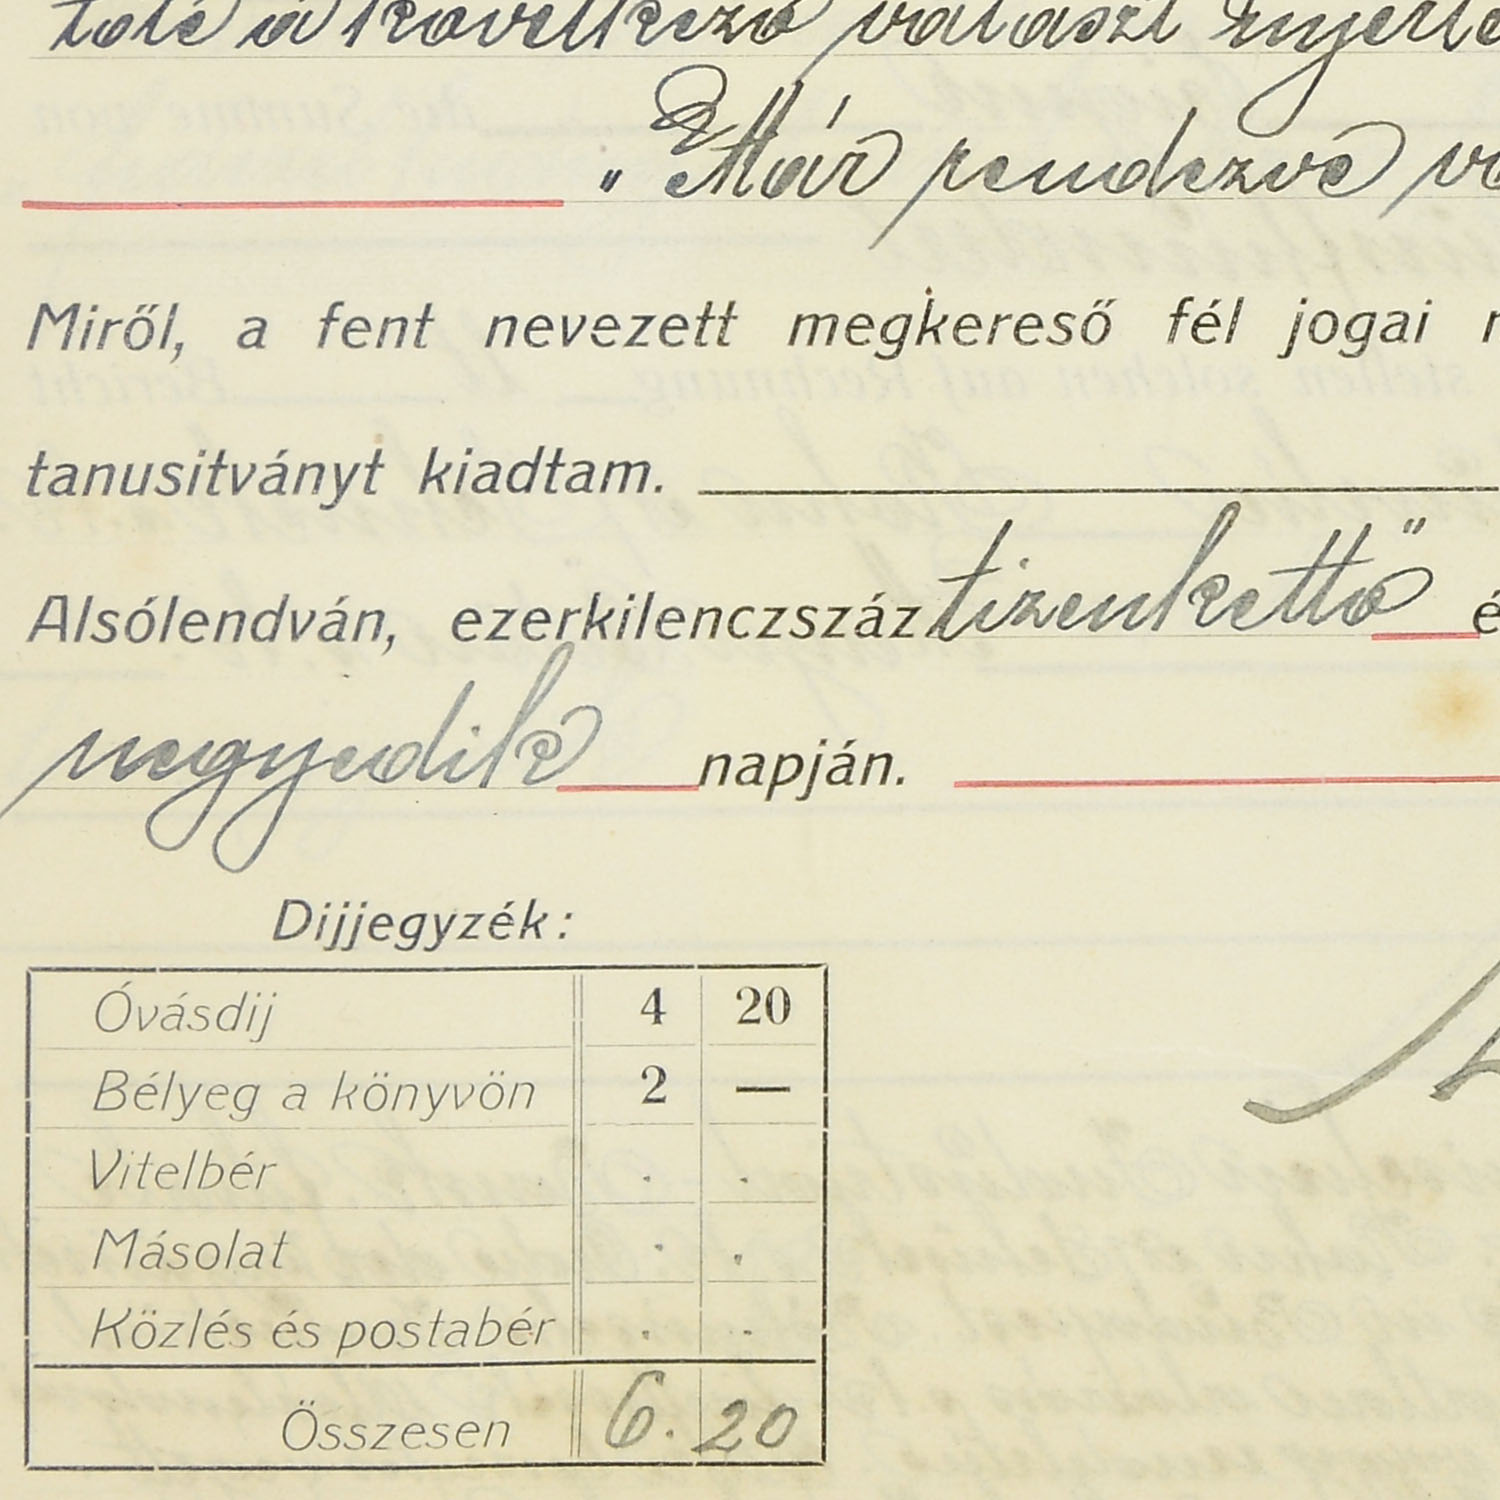 a következő választ nyerte
"Már rendezve
Miről, a fent nevezett megkereső fél jogai
tanusitványt kiadtam.
Alsólendván, ezerkilenczszáz tizenkettő é
negyedik napján.
Dijjegyzék:
Óvásdij 4 20
Bélyeg a könyvön 2 —
Vitelbér . .
Másolat . .
Közlés és postabér . .
Összesen 6. 20